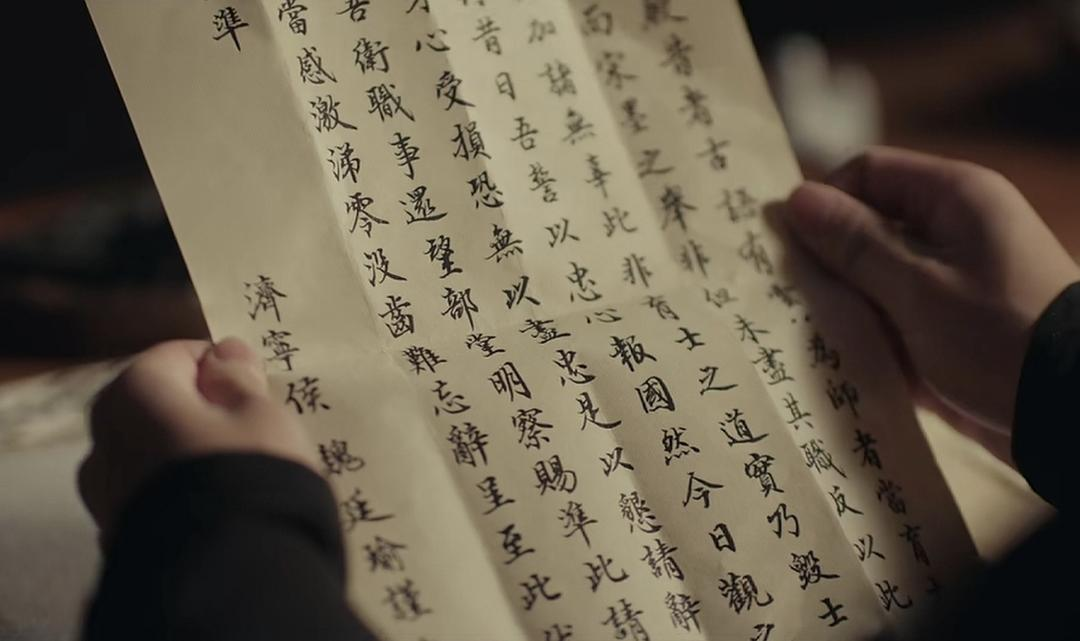 者古語有為師者當有
而宋墨之舉非但未盡其職反以此
加諸無辜此非有士之道實乃毀士
昔日吾誓以忠心報國然今日觀之
心受損恐無以盡忠是以懇請辭
吾衛職事還望部堂明察賜準此請
當感激涕零沒齒難忘辭呈至此
準
濟寧侯 魏廷瑜謹